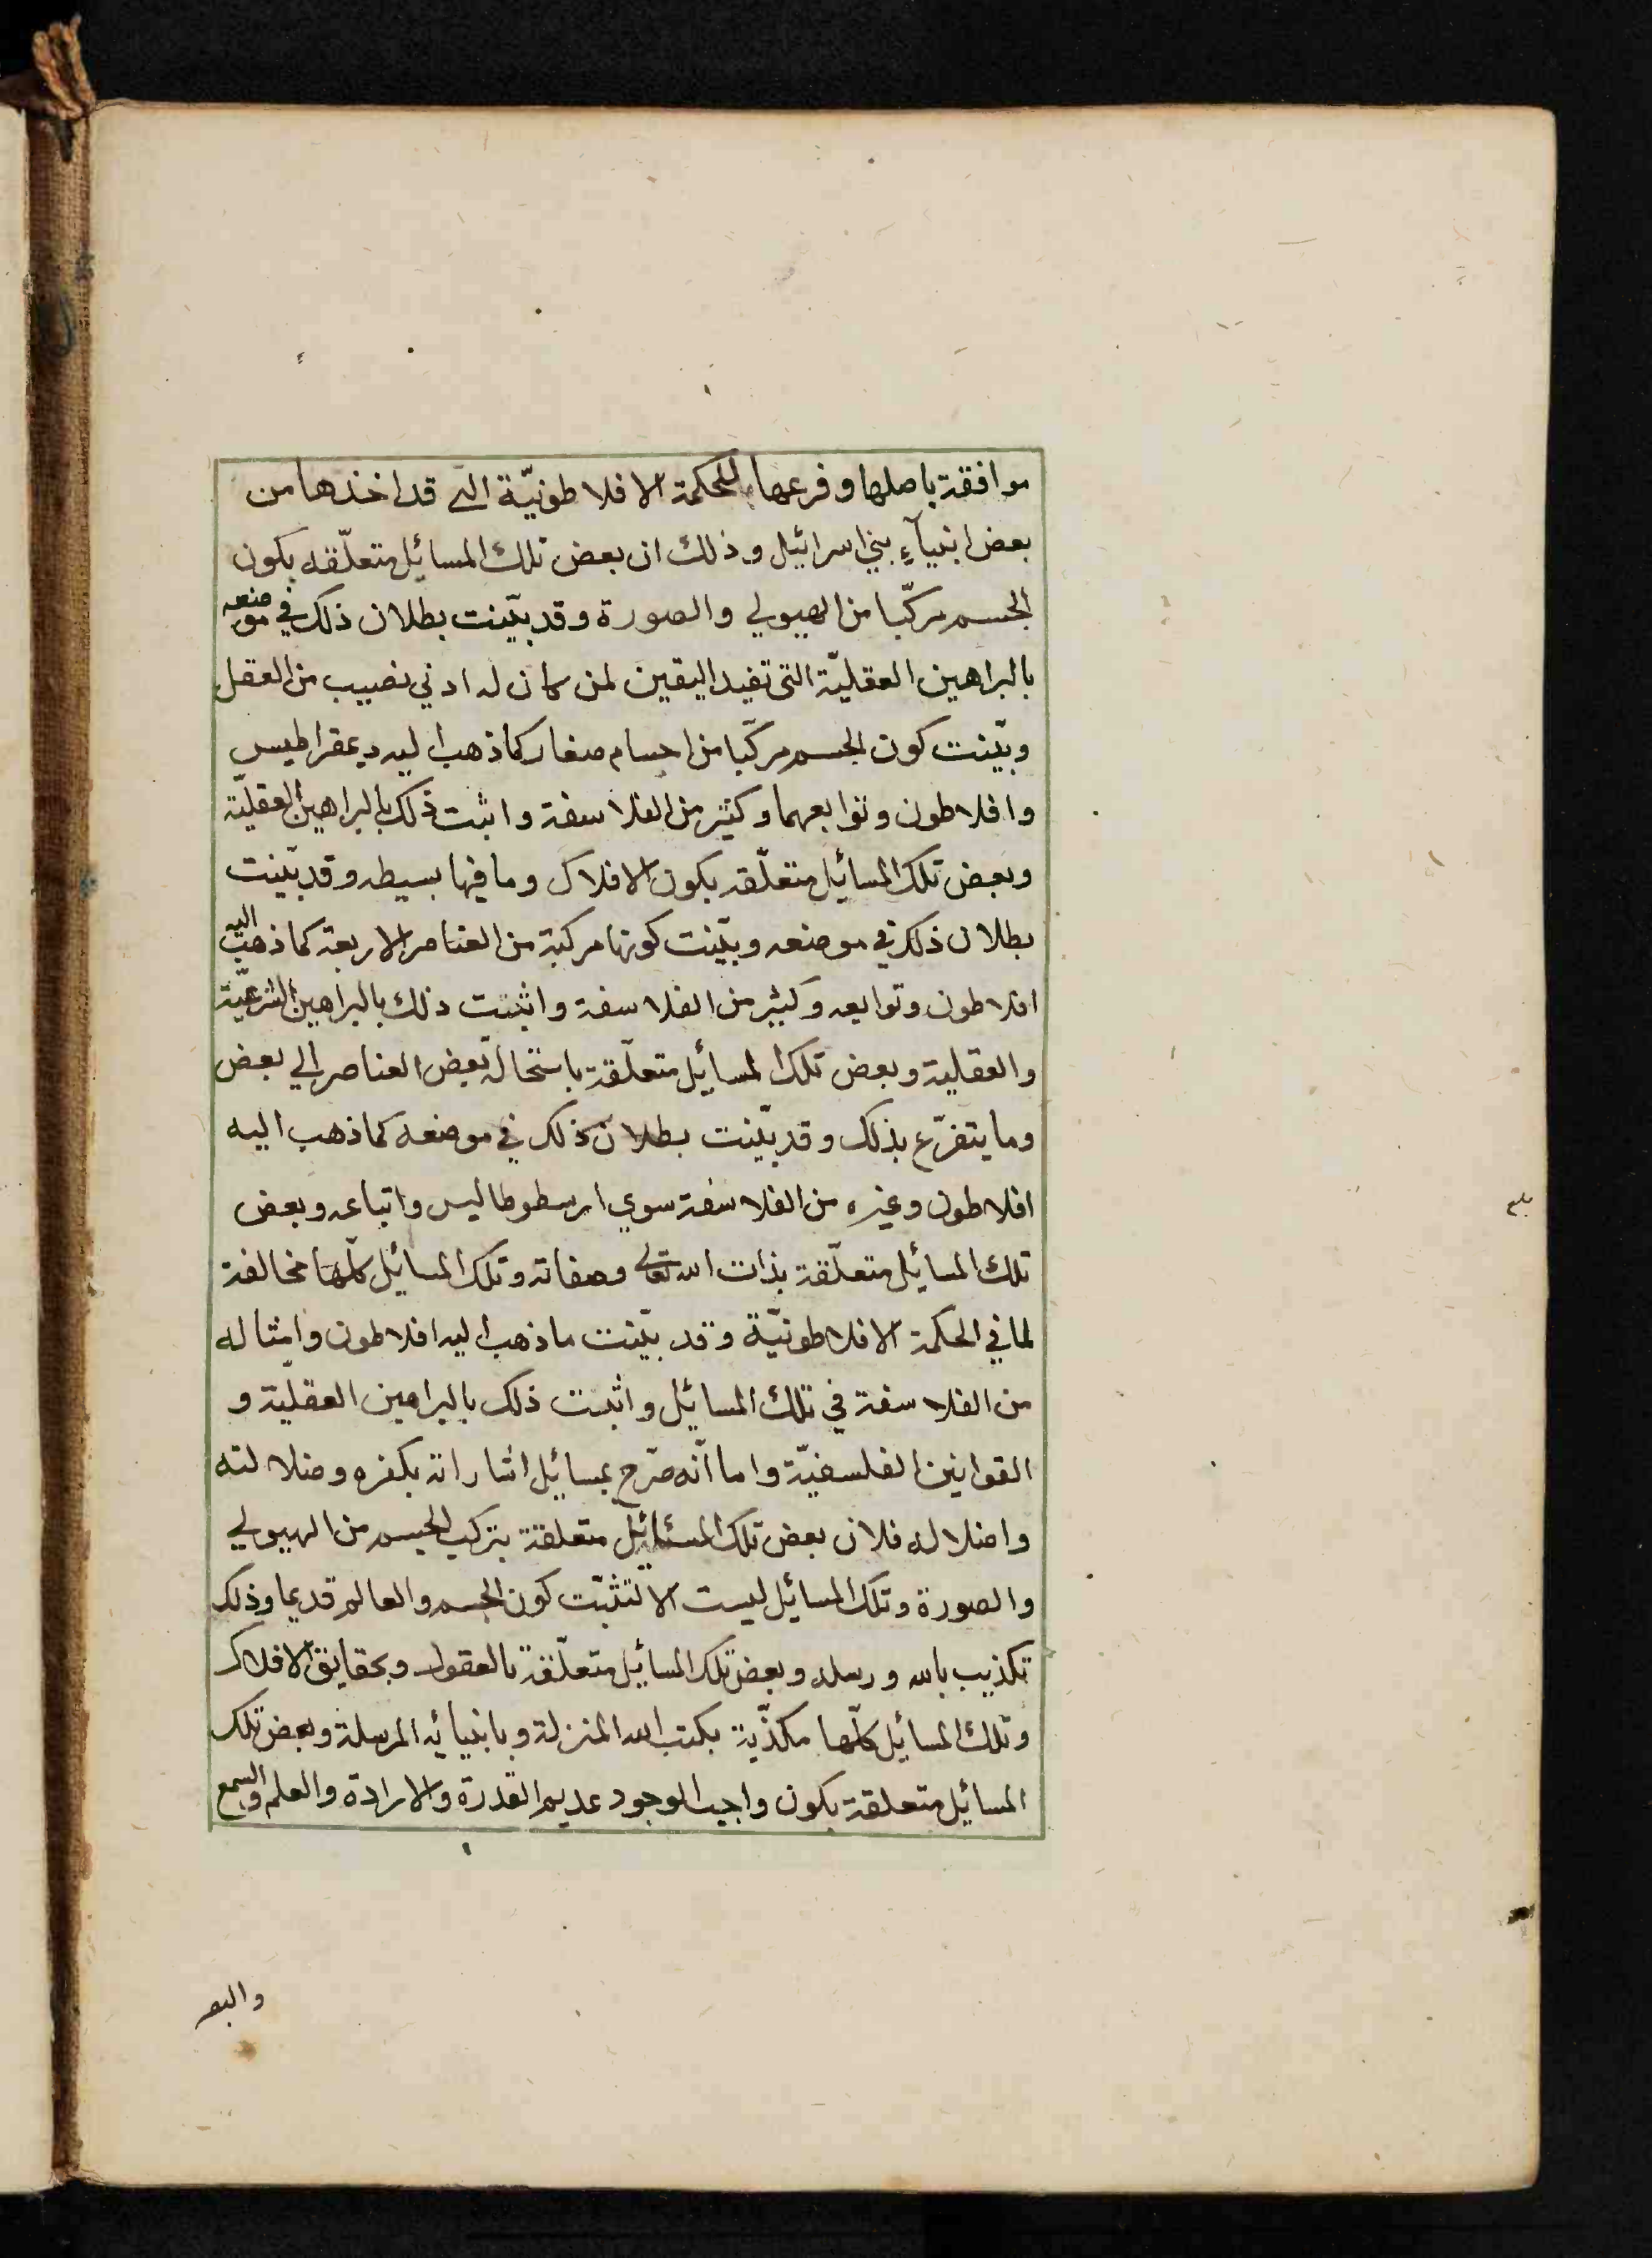 موافقة باصلها وفرعها للحكمة الافلاطونيّة التى قد اخذها من
بعض انبيآء بني اسرائيل وذلك ان بعض تلك المسائيل متعلّقه بكون
الجسم مركّبا من الهيولي والصورة وقد بيّنت بطلان ذلك في موضعه
بالبراهين العقليّة التى تفيد اليقين لمن كان له ادني نصيب من العقل
وبيّنت كون الجسم مركّبا من اجسام صغار كما ذهب اليه ديمقراطيس
وافلاطون وتوابعهما وكثير من الفلاسفة واثبت ذلك بالبراهين العقليّة
وبعض تلك المسائيل متعلّقه بكون الافلاك وما فيها بسيطه وقد بيّنت
بطلان ذلك في موضعه وبيّنت كونها مركبة من العناصر الاربعة كما ذهب اليه
افلاطون وتوابعه وكثير من الفلاسفة واثبتت ذلك بالبراهين الشرعيّة
والعقلية وبعض تلك المسائيل متعلّقة باستحالة بعض العناصر الي بعض
وما يتفرّع بذلك وقد بيّنت بطلان ذلك في موضعه كما ذهب اليه
افلاطون وغيره من الفلاسفة سوي ارسطوطاليس واتباعه وبعض
تلك المسائيل متعلّقة بذات الله تعالى وصفاته وتلك المسائيل كلّها مخالفة
لما في الحكمة الافلاطونيّة وقد بيّنت ما ذهب اليه افلاطون وامثاله
من الفلاسفة في تلك المسائيل واثبت ذلك بالبراهين العقليّة و
القوانين الفلسفيّة واما انّه صرّح بمسائيل اشاراته بكفره وضلالته
واضلاله فلان بعض تلك المسائيل متعلقة بتركيب الجسم من الهيولي
والصورة وتلك المسائيل ليست الا لتثبّت كون الجسم والعالم قديما وذلك
تكذيب بالله ورسله وبعض تلك المسائيل متعلّقة بالعقول وبحقايق الافلاك
وتلك المسائيل كلّها مكذّبة بكتب الله المنزلة وبانبيائه المرسلة وبعض تلك
المسائيل متعلقة بكون واجب الوجود عديم القدرة والارادة والعلم والسمع
والبصر